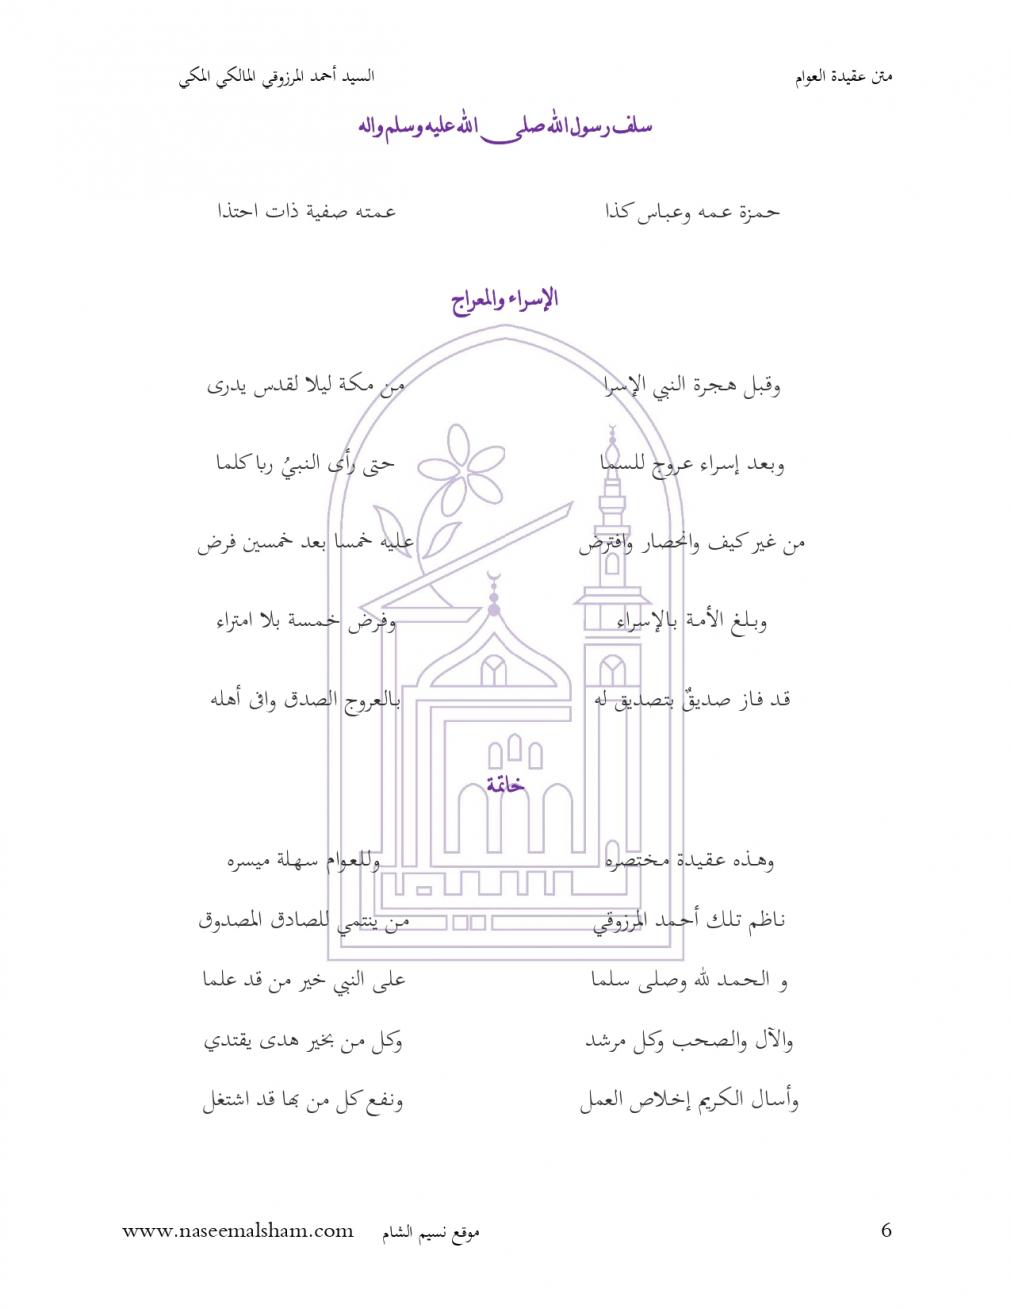 متن عقيدة العوام السيد أحمد المرزوقي المالكي المكي
سلف رسول الله صلى الله عليه وسلم واله
حمزة عمه وعباس كذا عمته صفية ذات احتذا
الإسراء والمعراج
وقبل هجرة النبي الإسرا من مكة ليلا لقدس يدرى
وبعد إسراء عروج للسما حتى رأى النبيُ ربا كلما
من غير كيف وانحصار وافترض عليه خمسا بعد خمسين فرض
وبلغ الأمة بالإسراء وفرض خمسة بلا امتراء
قد فاز صديقٌ بتصديق له بالعروج الصدق وافى أهله
خاتمة
وهذه عقيدة مختصره وللعوام سهلة ميسره
ناظم تلك أحمد المرزوقي من ينتمي للصادق المصدوق
و الحمد لله وصلى سلما على النبي خير من قد علما
والآل والصحب وكل مرشد وكل من بخير هدى يقتدي
وأسال الكريم إخلاص العمل ونفع كل من بها قد اشتغل
6 موقع نسيم الشام www.naseemalsham.com